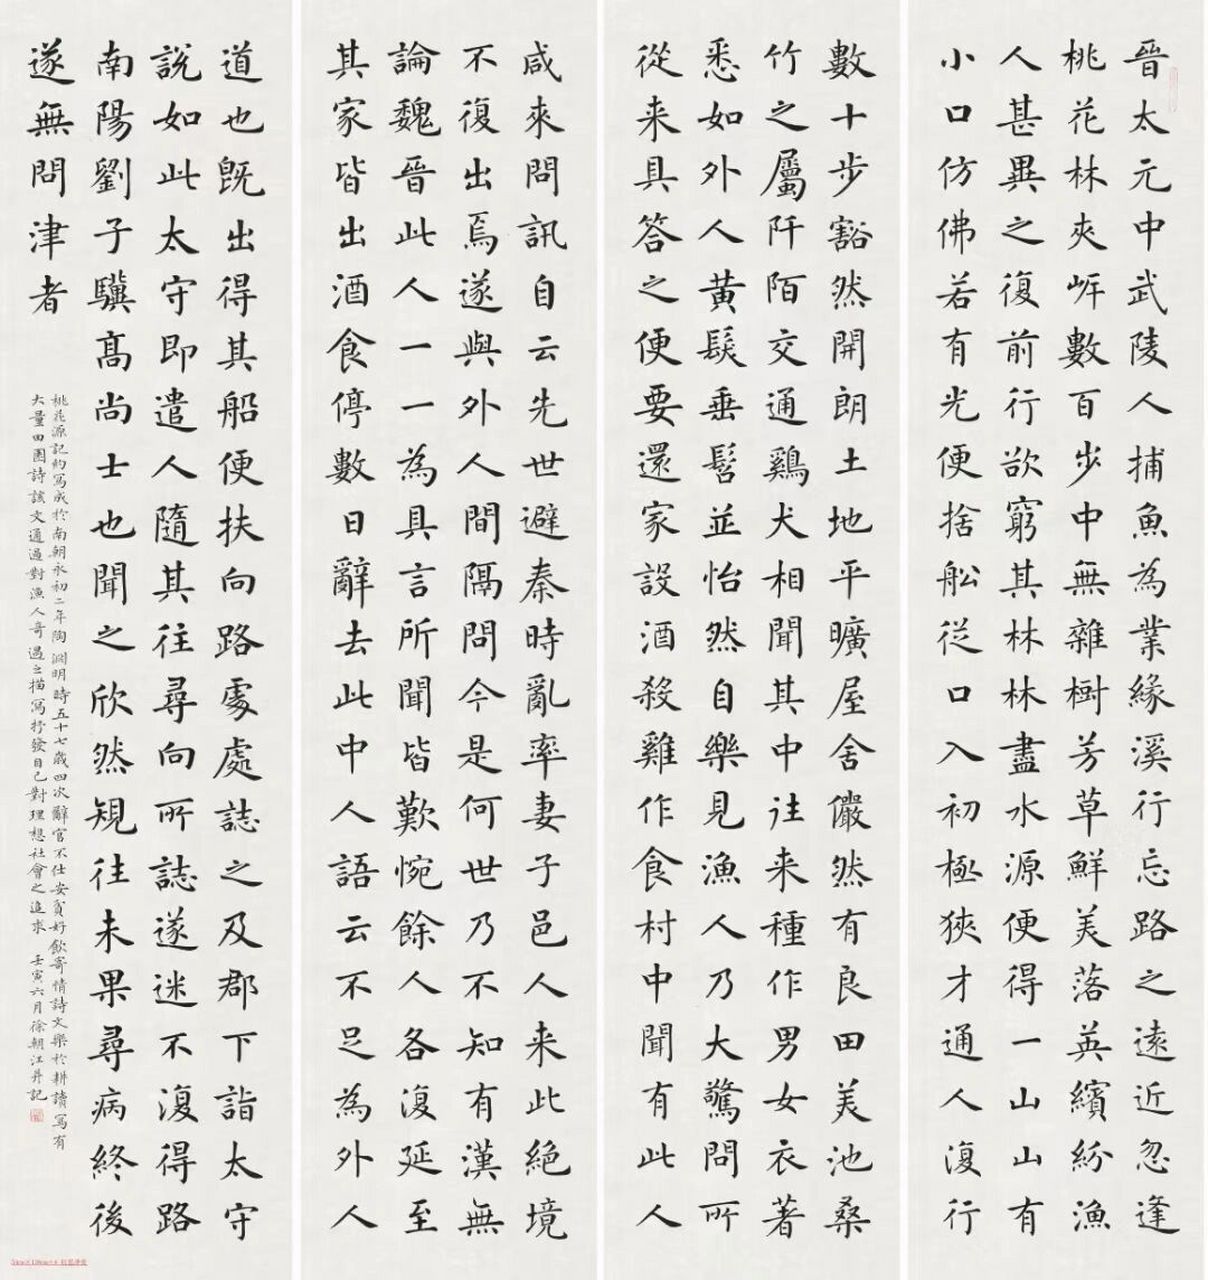 晉太元中武陵人捕魚為業緣溪行忘路之遠近忽逢
桃花林夾岸數百步中無雜樹芳草鮮美落英繽紛漁
人甚異之復前行欲窮其林林盡水源便得一山山有
小口仿佛若有光便捨舩從口入初極狹才通人復行
數十步豁然開朗土地平曠屋舍儼然有良田美池桑
竹之屬阡陌交通鷄犬相聞其中往来種作男女衣著
悉如外人黃髮垂髫並怡然自樂見漁人乃大驚問所
從来具答之便要還家設酒殺雞作食村中聞有此人
咸來問訊自云先世避秦時亂率妻子邑人来此絕境
不復出焉遂與外人間隔問今是何世乃不知有漢無
論魏晉此人一一為具言所聞皆歎惋餘人各復延至
其家皆出酒食停數日辭去此中人語云不足為外人
道也既出得其船便扶向路處處誌之及郡下詣太守
說如此太守即遣人隨其往尋向所誌遂迷不復得路
南陽劉子驥高尚士也聞之欣然規往未果尋病終後
遂無問津者
桃花源記約寫成於南朝永初二年陶淵明時五十七歲四次辭官不仕安貧好飲寄情詩文樂於耕讀寫有
大量田園詩該文通過對漁人奇遇之描寫抒發自己對理想社會之追求 壬寅六月徐朝江并記